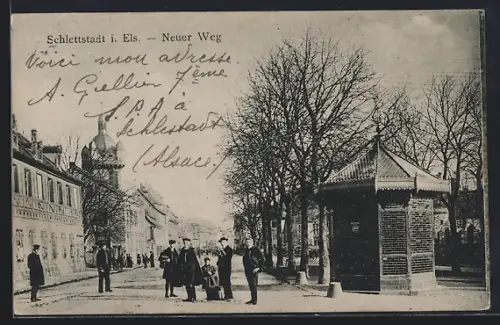 Schlettstadt i. Els. — Neuer Weg
Voici mon adresse.
A. Grellier 7ème
S.P.A à
Schlestadt
(Alsace)